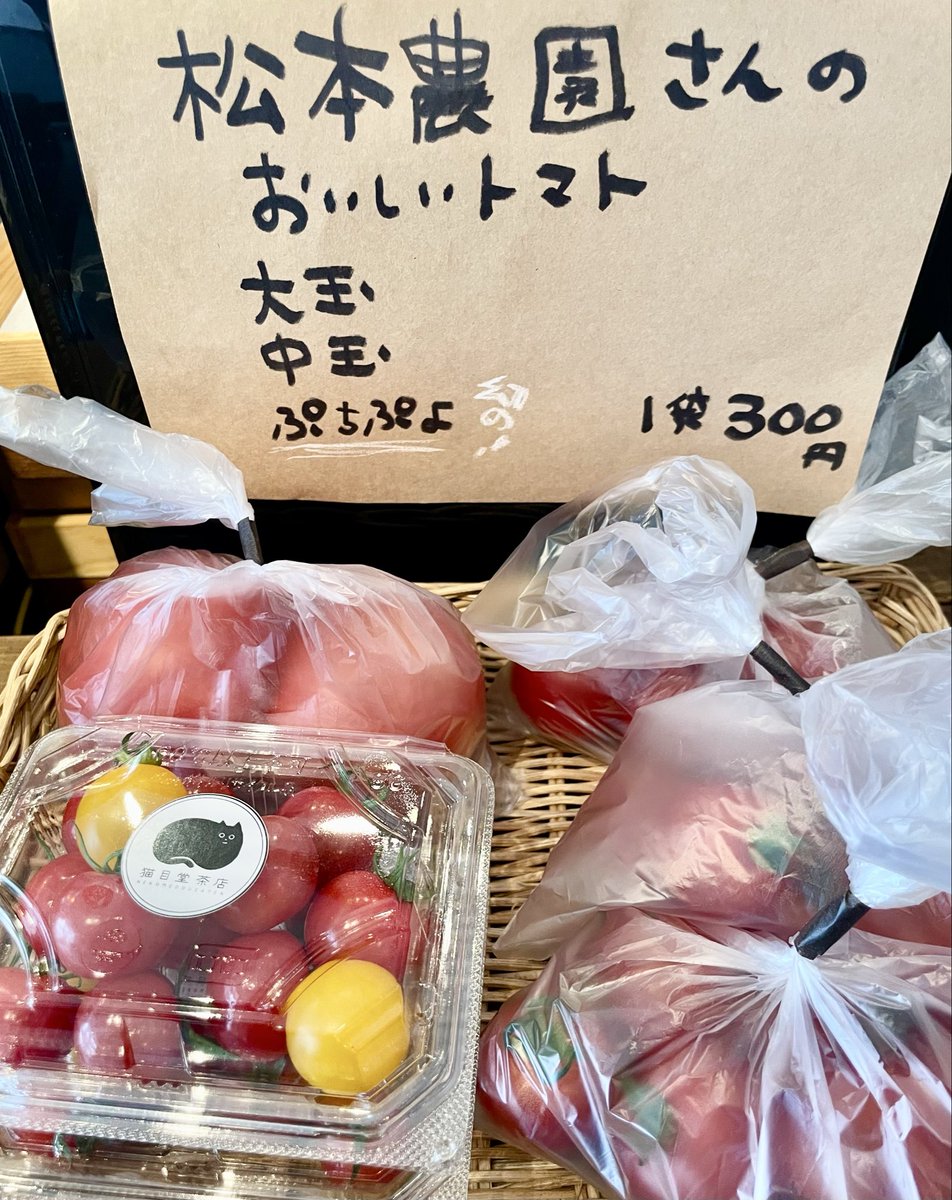 松本農園さんの
おいしいトマト
大玉
中玉
ぷちぷよ
1袋300
円
猫目堂茶店